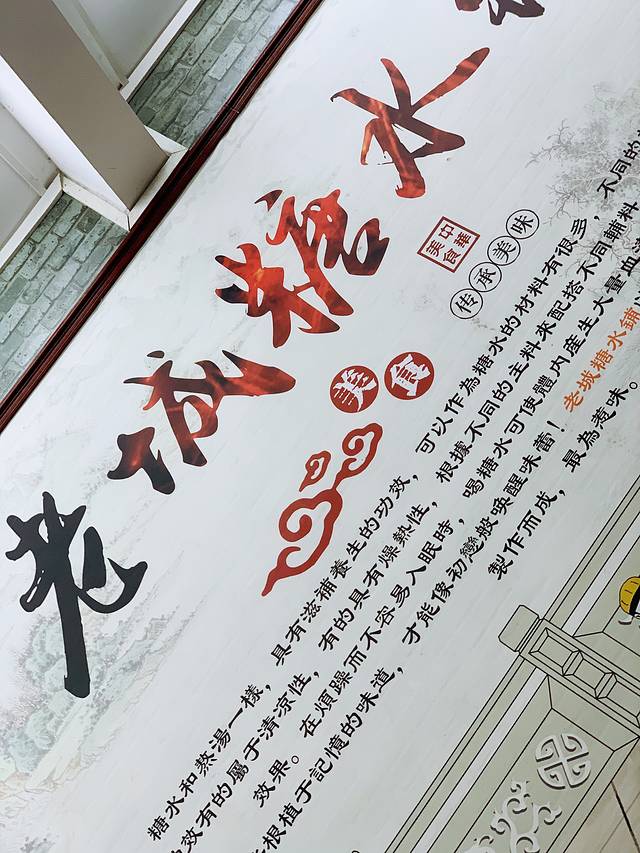 老城糖水
美食
中華美食
传承美味
糖水和熬湯一樣，具有滋補養生的功效，可以作為糖水的材料有很多，不同的
效有的屬于清凉性，有的具有燥熱性，根據不同的主料來配搭不同輔料
效果。在煩躁而不容易入眠時，喝糖水可使體內產生大量血
根植于記憶的味道，才能像初戀般喚醒味蕾！老城糖水鋪
製作而成，最為惹味。